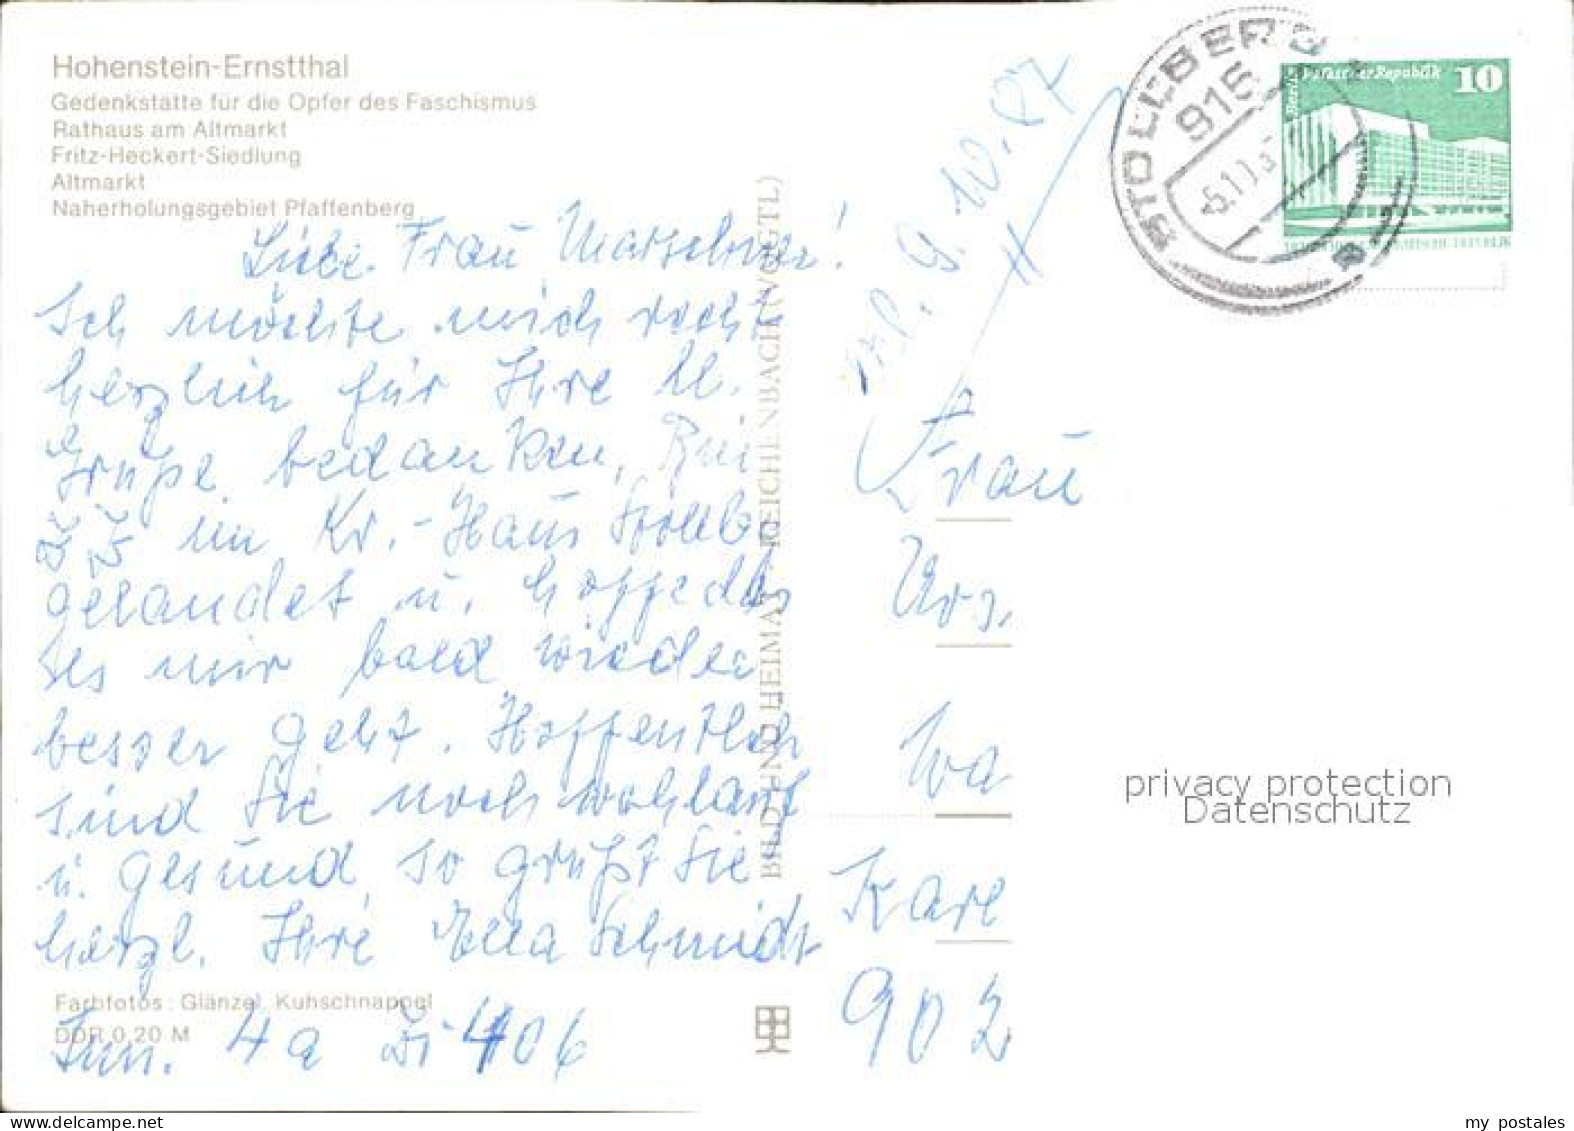 Hohenstein-Ernstthal
Gedenkstätte für die Opfer des Faschismus
Rathaus am Altmarkt
Fritz-Heckert-Siedlung
Altmarkt
Naherholungsgebiet Pfaffenberg
Liebe Frau Marschner!
Ich möchte mich recht
herzlich für Ihre ll.
Grüße bedanken, Bin
z. Z. im Kr.-Haus Stollb.
gelandet u. hoffe das
es mir bald wieder
besser geht. Hoffentlich
sind Sie noch wohlauf
u. gesund, so grüßt Sie
herzl. Ihre Ella Schmidt
Farbfotos: Glänzel, Kuhschnappel
DDR 0,20 M
Inn. 4a Zi 406
BILD UND HEIMAT REICHENBACH (VOGTL)
erl. 9.10.87
STOLLBERG
915
-5.10.8
Berlin, Palast der Republik 10
Frau
Urs.
Wa
Karl
902
privacy protection
Datenschutz
www.delcampe.net
my_postales